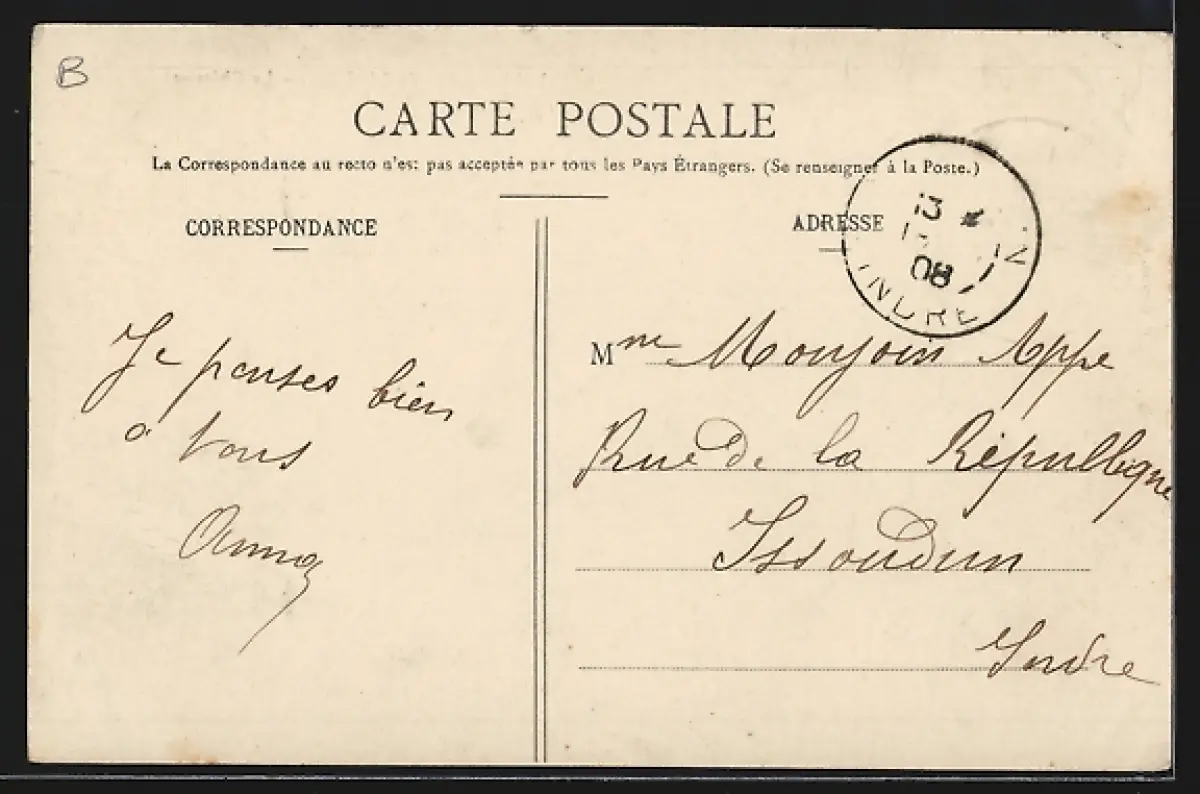 B
CARTE POSTALE
La Correspondance au recto n'est pas acceptée par tous les Pays Étrangers. (Se renseigner à la Poste.)
CORRESPONDANCE
ADRESSE
13 *
08
INDRE
Je penses bien
a vous
Anna
Mme Moujoin Appe
Rue de la République
Issoudun
Indre